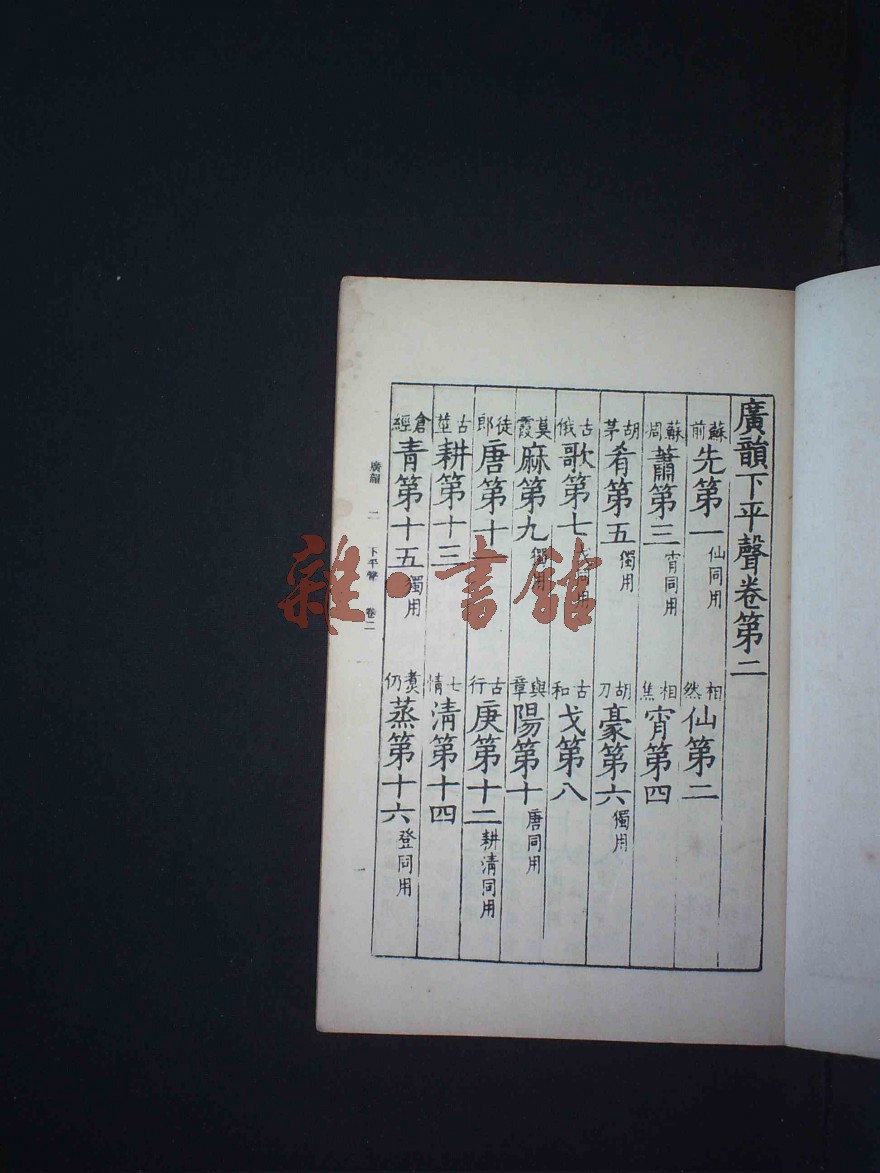 廣韻下平聲卷第二
蘇前先第一仙同用 相然仙第二
蘇凋蕭第三宵同用 相焦宵第四
胡茅肴第五獨用 胡刀豪第六獨用
古俄歌第七戈同用 古和戈第八
莫霞麻第九獨用 與章陽第十唐同用
徒郎唐第十一 古行庚第十二耕清同用
古莖耕第十三 七情清第十四
倉經青第十五獨用 煑仍蒸第十六登同用
廣韻 二 下平聲 卷二 一
雜·書館